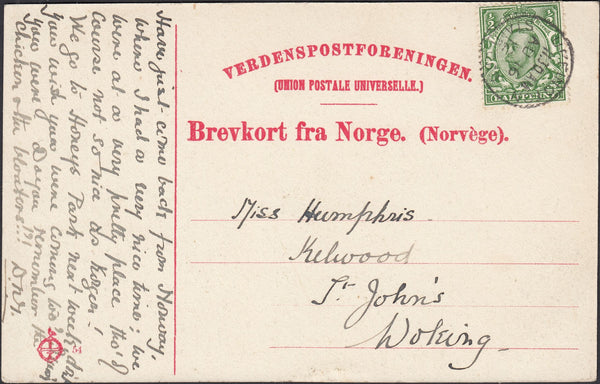 Have just come back from Norway.
where I had a very nice time; we
were at a very pretty place tho' of
course not so nice as Kogen!
We go to Honeys Park next week, don't
you wish you were coming too? I wish
you were! Do you remember the
chicken & the bloaters!!?!
VERDENSPOSTFORENINGEN.
(UNION POSTALE UNIVERSELLE.)
Brevkort fra Norge. (Norvège).
Miss Humphris.
Kelwood
St. John's
Woking.
54